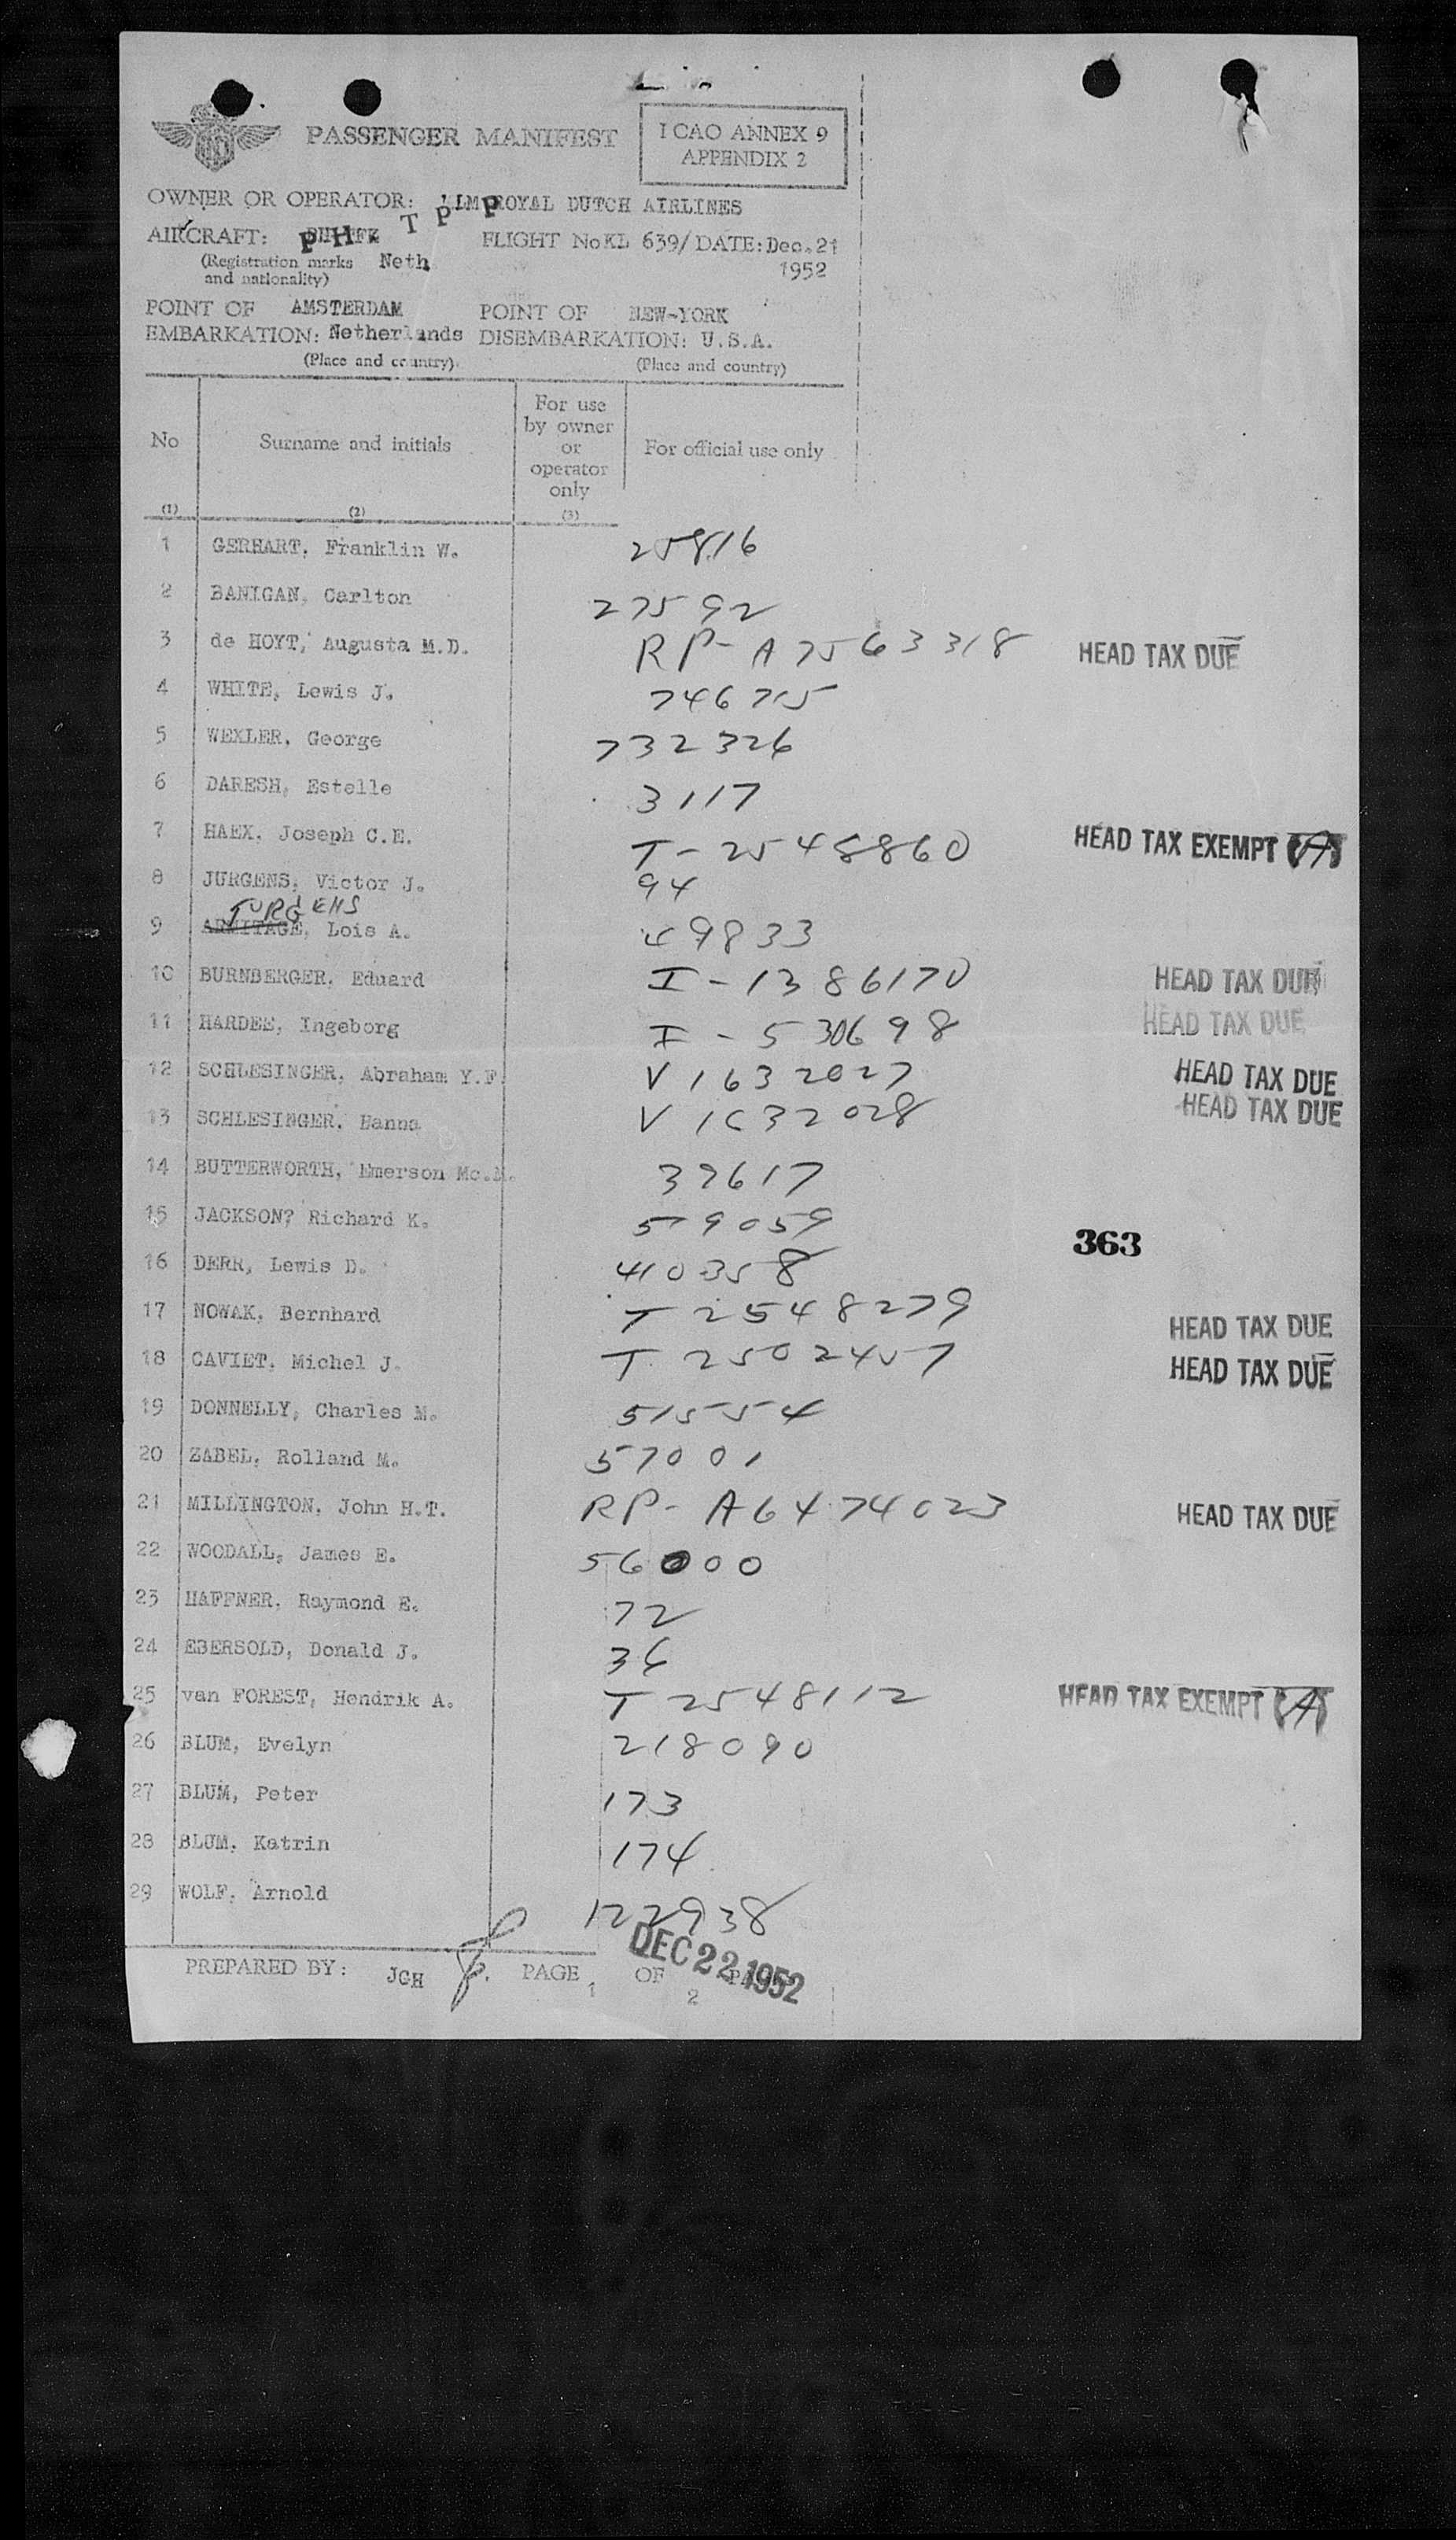 PASSENGER MANIFEST
I CAO ANNEX 9
APPENDIX 2
OWNER OR OPERATOR: KLM ROYAL DUTCH AIRLINES
AIRCRAFT: P H T P P FLIGHT No KL 639/ DATE: Dec. 21
(Registration marks and nationality) Neth 1952
POINT OF EMBARKATION: AMSTERDAM Netherlands POINT OF DISEMBARKATION: NEW-YORK U.S.A.
(Place and country) (Place and country)
No Surname and initials For use by owner or operator only For official use only
(1) (2) (3)
1 GERHART, Franklin W. 25816
2 BANIGAN, Carlton 27592
3 de HOYT, Augusta M.D. RP-A7563318 HEAD TAX DUE
4 WHITE, Lewis J. 746715
5 WEXLER, George 732326
6 DARESH, Estelle 3117
7 HAEX, Joseph C.E. T-2548860 HEAD TAX EXEMPT (A)
8 JURGENS, Victor J. 94
JURGENS
9 ARMITAGE, Lois A. 49833
10 BURNBERGER, Eduard I-1386170 HEAD TAX DUE
11 HARDEE, Ingeborg I-530698 HEAD TAX DUE
12 SCHLESINGER, Abraham Y.F. V1632027 HEAD TAX DUE
13 SCHLESINGER, Hanna V1632028 HEAD TAX DUE
14 BUTTERWORTH, Emerson Mc.M. 37617
15 JACKSON? Richard K. 579059
363
16 DERR, Lewis D. 410358
17 NOWAK, Bernhard T 2548279 HEAD TAX DUE
18 CAVIET, Michel J. T 2502457 HEAD TAX DUE
19 DONNELLY, Charles M. 51554
20 ZABEL, Rolland M. 57001
21 MILLINGTON, John H.T. RP-A6474023 HEAD TAX DUE
22 WOODALL, James E. 56000
23 HAFFNER, Raymond E. 72
24 EBERSOLD, Donald J. 36
25 van FOREST, Hendrik A. T 2548112 HEAD TAX EXEMPT (A)
26 BLUM, Evelyn 218090
27 BLUM, Peter 173
28 BLUM, Katrin 174
29 WOLF, Arnold 122938
DEC 22 1952
PREPARED BY: JGH PAGE 1 OF 2